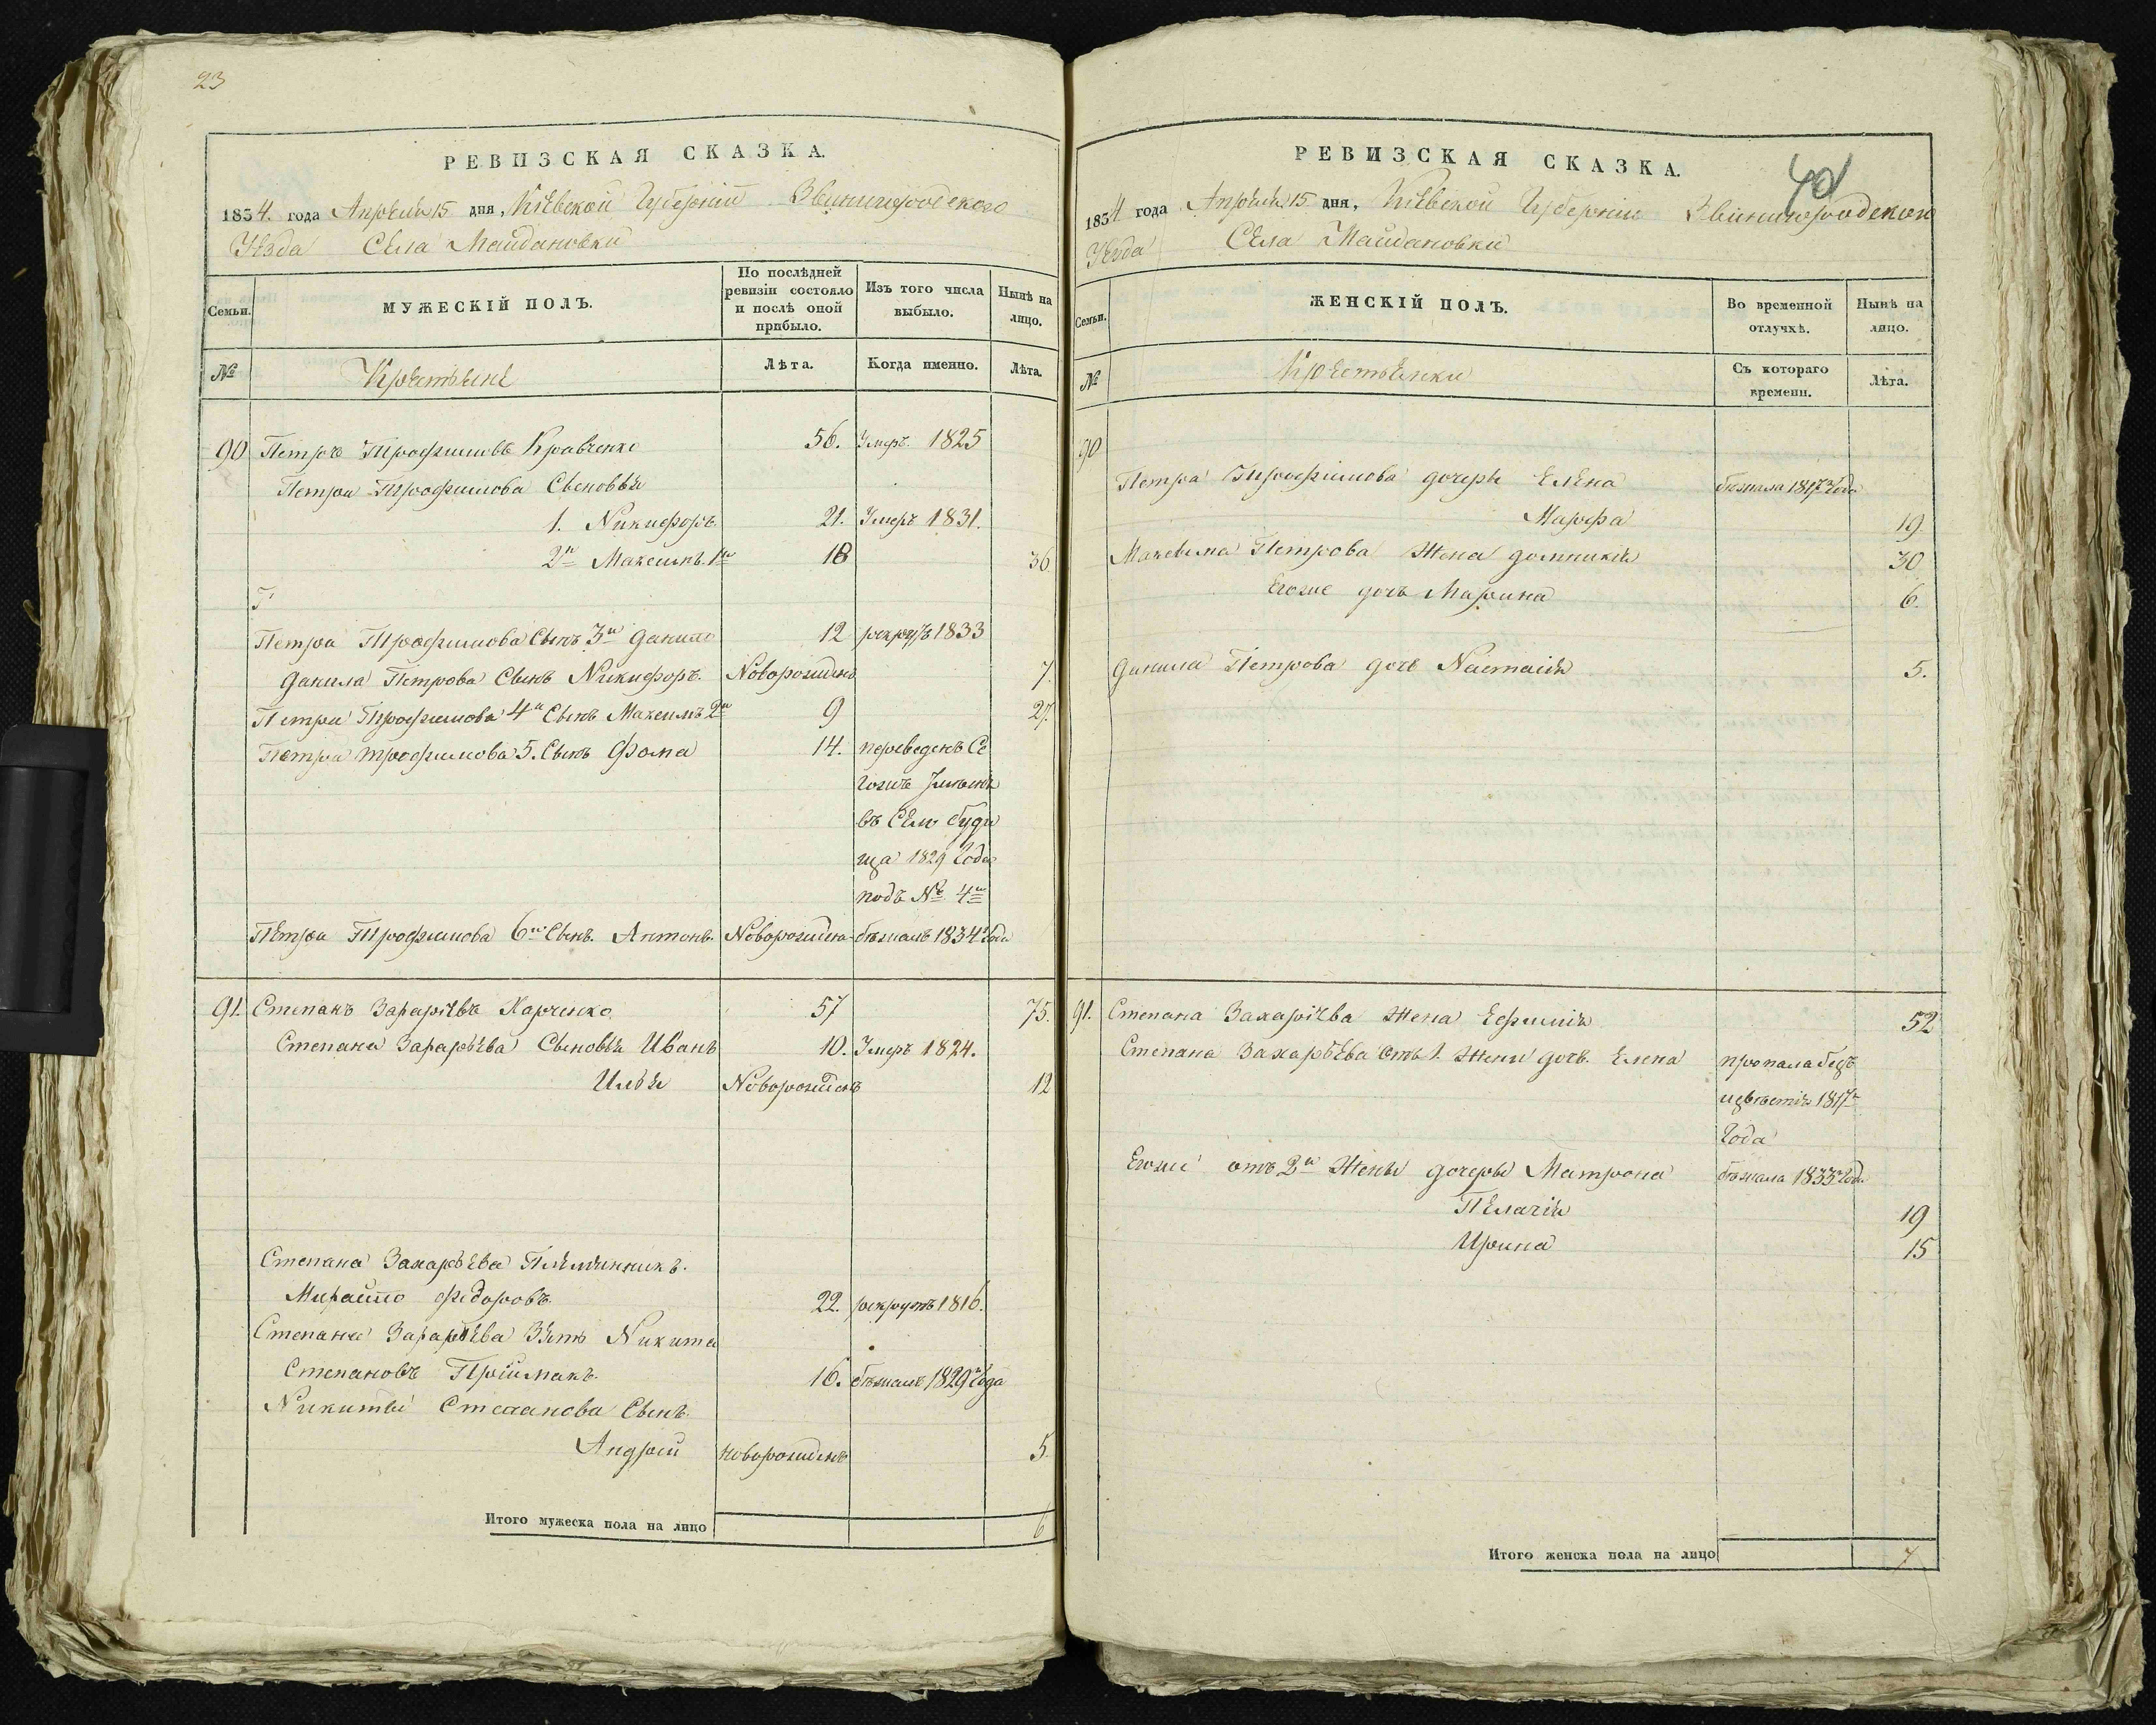 23
РЕВИЗСКАЯ СКАЗКА.
1834. года Апрѣля 15 дня, Кіевской Губерніи Звинигродского
Уѣзда Села Майдановки
Семьи.
МУЖЕСКІЙ ПОЛЪ.
По послѣдней ревизіи состояло и послѣ оной прибыло.
Изъ того числа выбыло.
Нынѣ на лицо.
№
Крестьяне
Лѣта.
Когда именно.
Лѣта.
90 Петръ Трофимовъ Кравченко 56. Умеръ 1825
Петра Трофимова Сыновья
1. Никифоръ. 21. Умеръ 1831.
2й Максимъ. 1й 18 36
Петра Трофимова Сынъ 3й Данило 12 рекрутъ 1833
Данила Петрова Сынъ Никифоръ. Новорожденъ 7.
Петра Трофимова 4й Сынъ Максимъ 2й 9 27.
Петра Трофимова 5. Сынъ Фома 14. переведенъ Се
гожъ Имѣнія
въ Село Буди
ща 1829 Года
подъ № 4м
Петра Трофимова 6й Сынъ. Антонъ. Новорожден бѣжалъ 1834 Года
91. Степанъ Захарьевъ Харченко 57 75.
Степана Захарьева Сыновья Иванъ 10. Умеръ 1824.
Илья Новорожденъ 12
Степана Захарьева Племянникъ.
Михайло Федоровъ. 22. рекрутъ 1816.
Степана Захарьева Зять Никита
Степановъ Пріймакъ. 16. бѣжалъ 1829 Года
Никиты Степанова Сынъ.
Андрей новорожденъ 5.
Итого мужеска пола на лицо 6
40
РЕВИЗСКАЯ СКАЗКА.
1834 года Апрѣля 15 дня, Кіевской Губерніи Звинигродского
Уѣзда Села Майдановки
Семьи.
ЖЕНСКІЙ ПОЛЪ.
Во временной отлучкѣ.
Нынѣ на лицо.
№
Крестьянки
Съ котораго времени.
Лѣта.
90
Петра Трофимова дочери Елена бѣжала 1817 Года
Марфа 19.
Максима Петрова Жена Домникія 30
Егоже дочь Марина 6.
Данила Петрова дочь Настасія 5.
91. Степана Захаріева Жена Ефимія 52
Степана Захарьева отъ 1. Жены дочь. Елена пропала безъ
извѣстія 1817
Года
Егоже отъ 2й Жены дочеры Матрона бѣжала 1833 Года
Пелагія 19
Ирина 15
Итого женска пола на лицо 7